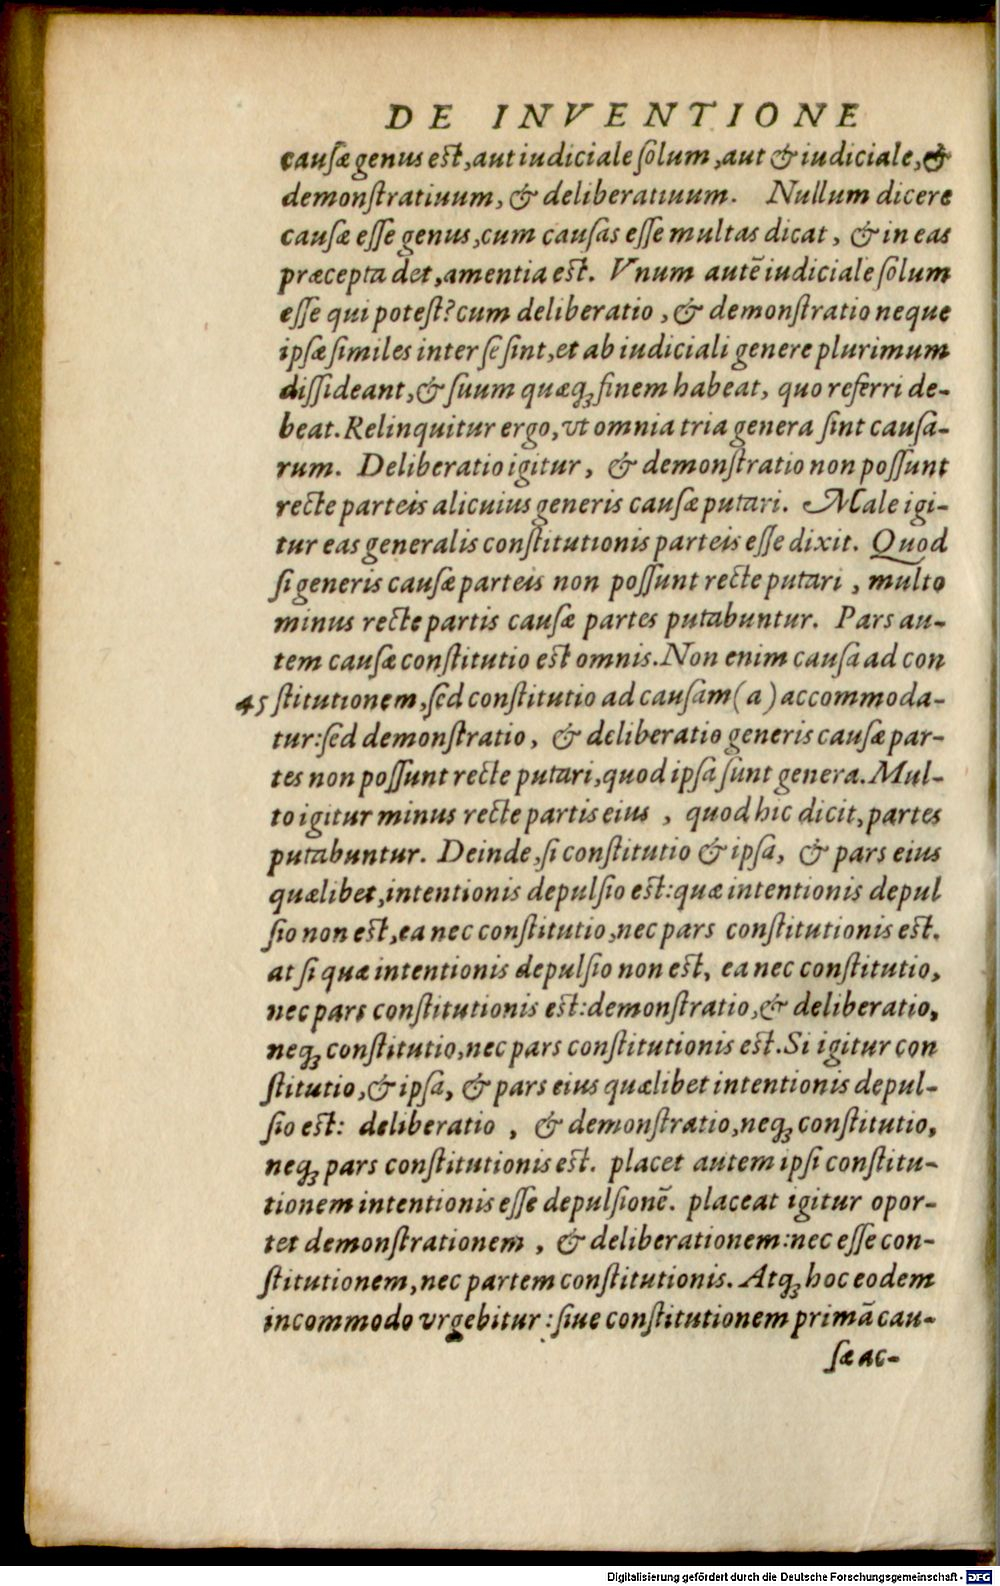 DE INVENTIONE
causæ genus est, aut iudiciale solum, aut & iudiciale, &
demonstratiuum, & deliberatiuum. Nullum dicere
causæ esse genus, cum causas esse multas dicat, & in eas
præcepta det, amentia est. Vnum autē iudiciale solum
esse qui potest? cum deliberatio, & demonstratio neque
ipsæ similes inter se sint, et ab iudiciali genere plurimum
dissideant, & suum quæq; finem habeat, quo referri de-
beat. Relinquitur ergo, vt omnia tria genera sint causa-
rum. Deliberatio igitur, & demonstratio non possunt
recte parteis alicuius generis causæ putari. Male igi-
tur eas generalis constitutionis parteis esse dixit. Quod
si generis causæ parteis non possunt recte putari, multo
minus recte partis causæ partes putabuntur. Pars au-
tem causæ constitutio est omnis. Non enim causa ad con
45 stitutionem, sed constitutio ad causam (a) accommoda-
tur: sed demonstratio, & deliberatio generis causæ par-
tes non possunt recte putari, quod ipsa sunt genera. Mul-
to igitur minus recte partis eius, quod hic dicit, partes
putabuntur. Deinde, si constitutio & ipsa, & pars eius
quælibet, intentionis depulsio est: quæ intentionis depul
sio non est, ea nec constitutio, nec pars constitutionis est.
at si quæ intentionis depulsio non est, ea nec constitutio,
nec pars constitutionis est: demonstratio, & deliberatio,
neq; constitutio, nec pars constitutionis est. Si igitur con
stitutio, & ipsa, & pars eius quælibet intentionis depul-
sio est: deliberatio, & demonstratio, neq; constitutio,
neq; pars constitutionis est. placet autem ipsi constitu-
tionem intentionis esse depulsionē. placeat igitur opor-
tet demonstrationem, & deliberationem: nec esse con-
stitutionem, nec partem constitutionis. Atq; hoc eodem
incommodo vrgebitur: siue constitutionem primā cau-
sæ ac-
Digitalisierung gefördert durch die Deutsche Forschungsgemeinschaft - DFG